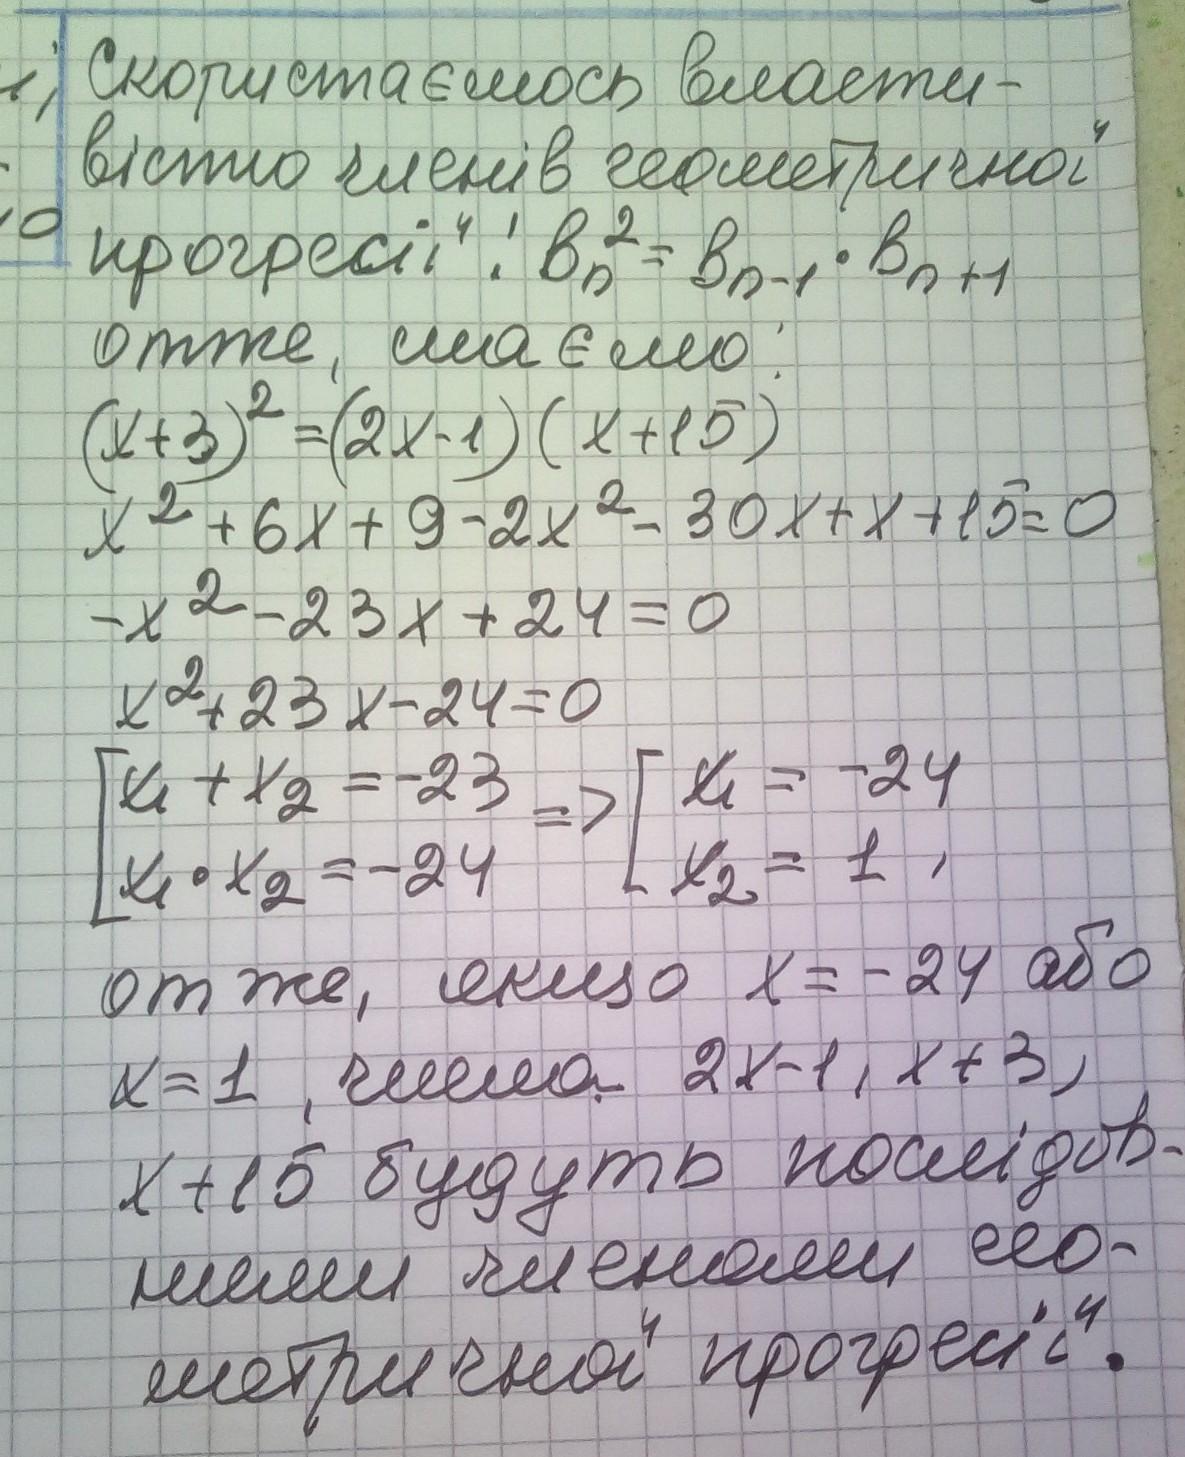 Скористаємось власти-
вістю членів геометричної
прогресії: bₙ² = bₙ₋₁ · bₙ₊₁
отже, маємо:
(x+3)² = (2x-1)(x+15)
x² + 6x + 9 - 2x² - 30x + x + 15 = 0
-x² - 23x + 24 = 0
x² + 23x - 24 = 0
[x₁ + x₂ = -23 => [x₁ = -24
[x₁ · x₂ = -24 [x₂ = 1,
отже, якщо x = -24 або
x = 1, числа 2x-1, x+3,
x+15 будуть послідов-
ними членами гео-
метричної прогресії.